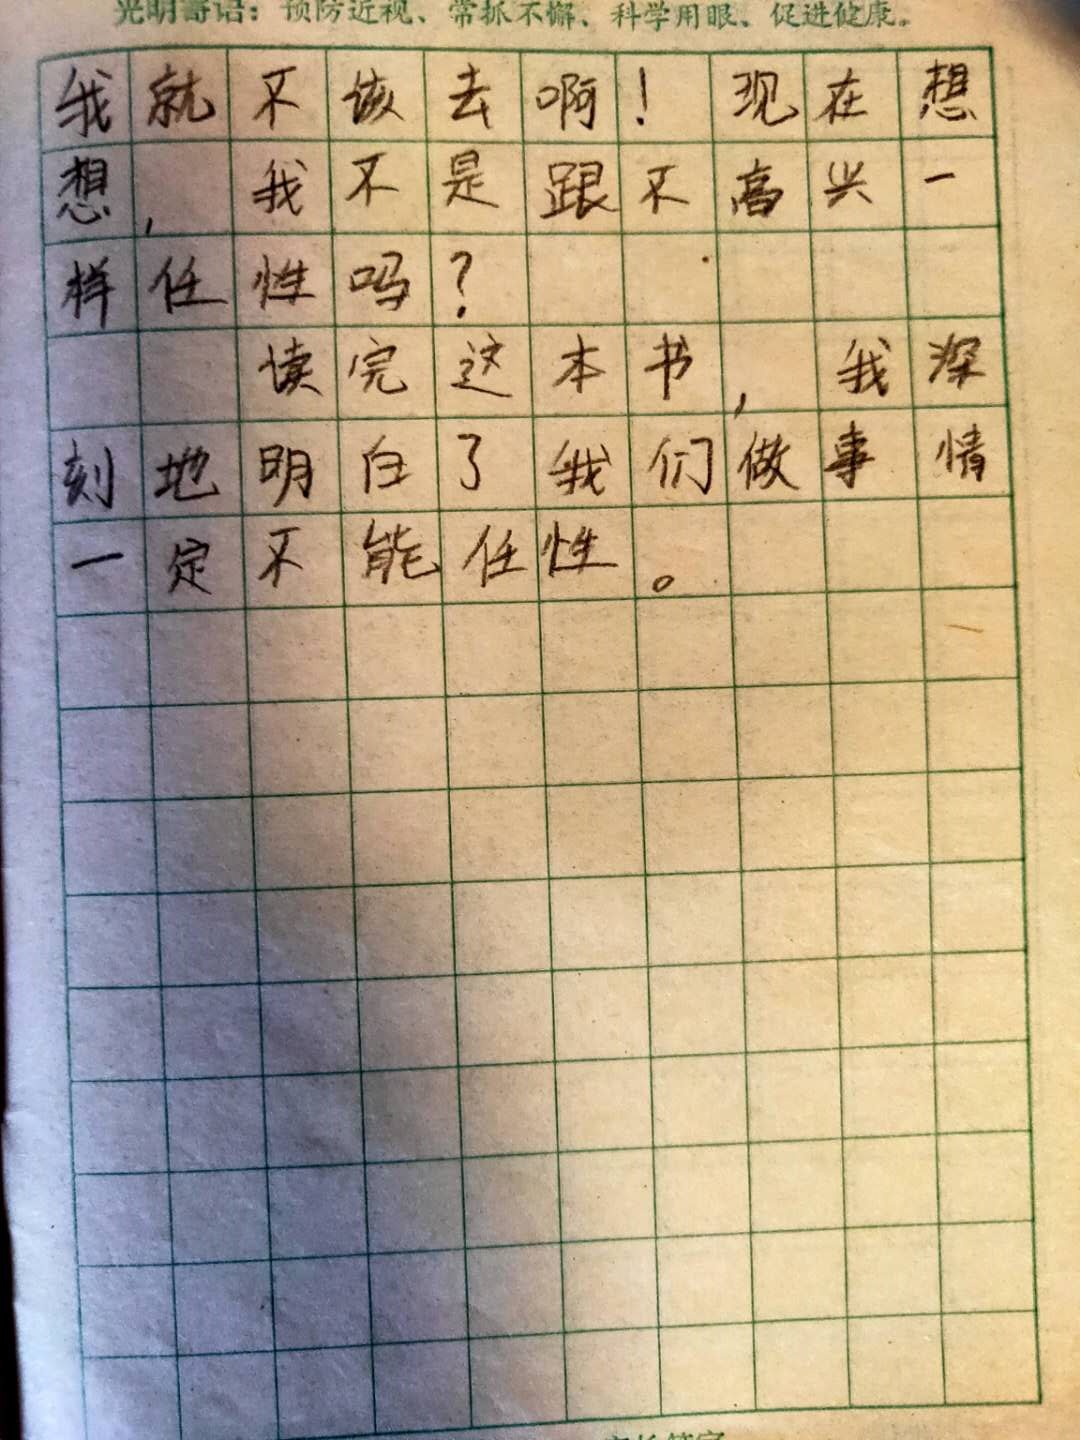 光明寄语：预防近视、常抓不懈、科学用眼、促进健康。
我就不该去啊！现在想
想，我不是跟不高兴一
样任性吗？
读完这本书，我深
刻地明白了我们做事情
一定不能任性。